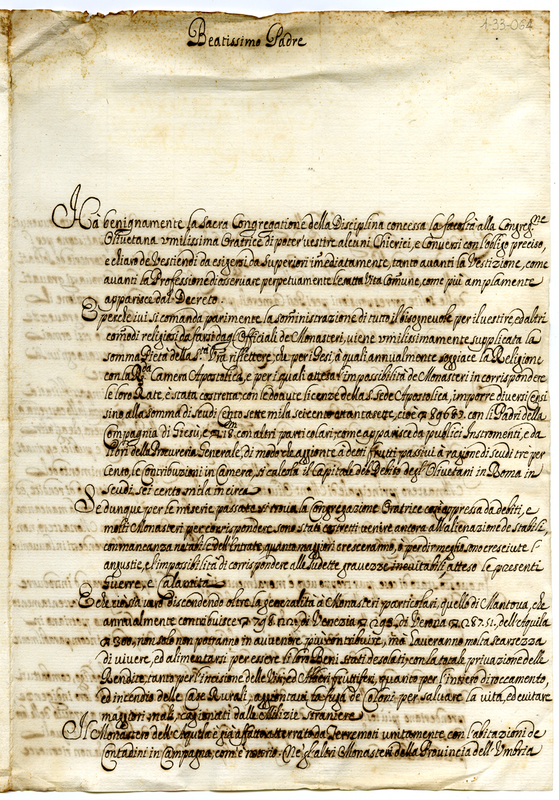 1-33-064
Beatissimo Padre
Hà benignamente la Sacra Congregatione della Disciplina concessa la facoltà alla Congreg.ne
Olivetana umilissima Oratrice di poter vestire alcuni Chierici, e Conversi con l'obligo preciso,
e chiaro de Vestiendi da esigersi da Superiori imediatamente, tanto avanti la Vestizione, come
avanti la Professione di osservare perpetuamente l'esatta Vita Comune, come più amplamente
apparisce dal Decreto
E perche ivi si comanda parimente la somministrazione di tutto il bisognevole per il vestire, ed altri
comodi religiosi da farsi dagl'Officiali de Monasteri, viene umilissimamente supplicata la
somma Pietà della S.tà V.ra riflettere, che per i Pesi, a quali annualmente soggiace la Religione
con la R.da Camera Apostolica, e per i quali attesa l'impossibilità de Monasteri in corrispondere
le loro Rate, è stata costretta con le dovute licenze della S. Sede Apostolica, imporre diversi Censi
sino alla somma di scudi Cento sette mila seicento quanta sette, cioè 89689 con li Padri della
Compagnia di Giesù, e 18 con altri particolari come apparisce da publici Instromenti, e da
libri della Procuria Generale, di modo che aggionte a detti frutti passivi à ragione di scudi tre per
Cento, le Contribuzioni in Camera, si calcola il Capitale del Debito degl'Olivetani in Roma in
scudi sei cento mila in circa
Se dunque per le miserie passate si trova la Congregazione Oratrice così oppressa da debiti, e
molti Monasteri per corrispondere sono stati costretti venire ancora all'alienazione de stabili,
con mancanza notabile dell'Intrate, quanto maggiori cresceranno, ò per dir meglio, sono cresciute l'
angustie, e l'impossibilità di corrispondere alle sudette gravezze inevitabili, atteso le presenti
Guerre, e Calamità
E che ciò sia vero discendendo oltre la generalità à Monasteri particolari, quello di Mantova, che
annualmente contribuisce 798. di Venezia 298. di Verona 287.51. dell'Aquila
300, non solo non potranno in avvenire più contribuire, ma s'averanno molta scarsezza
di vivere, ed alimentarsi per essere li loro Beni stati desolati, con la totale privazione delle
Rendite, tanto per l'incisione delle Viti, ed Alberi fruttiferi, quanto per l'intiero diroccamento,
ed incendio delle Case Rurali, aggiontavi la fuga de Coloni per salvare la vita, ed evitare
maggiori mali, cagionati dalle Milizie straniere
Il Monastero dell'Aquila è già affatto atterrato da Terremoti unitamente con l'abitazioni de
Contadini in Campagna, com'è notorio. Che gl'altri Monasteri della Provincia dell'Umbria